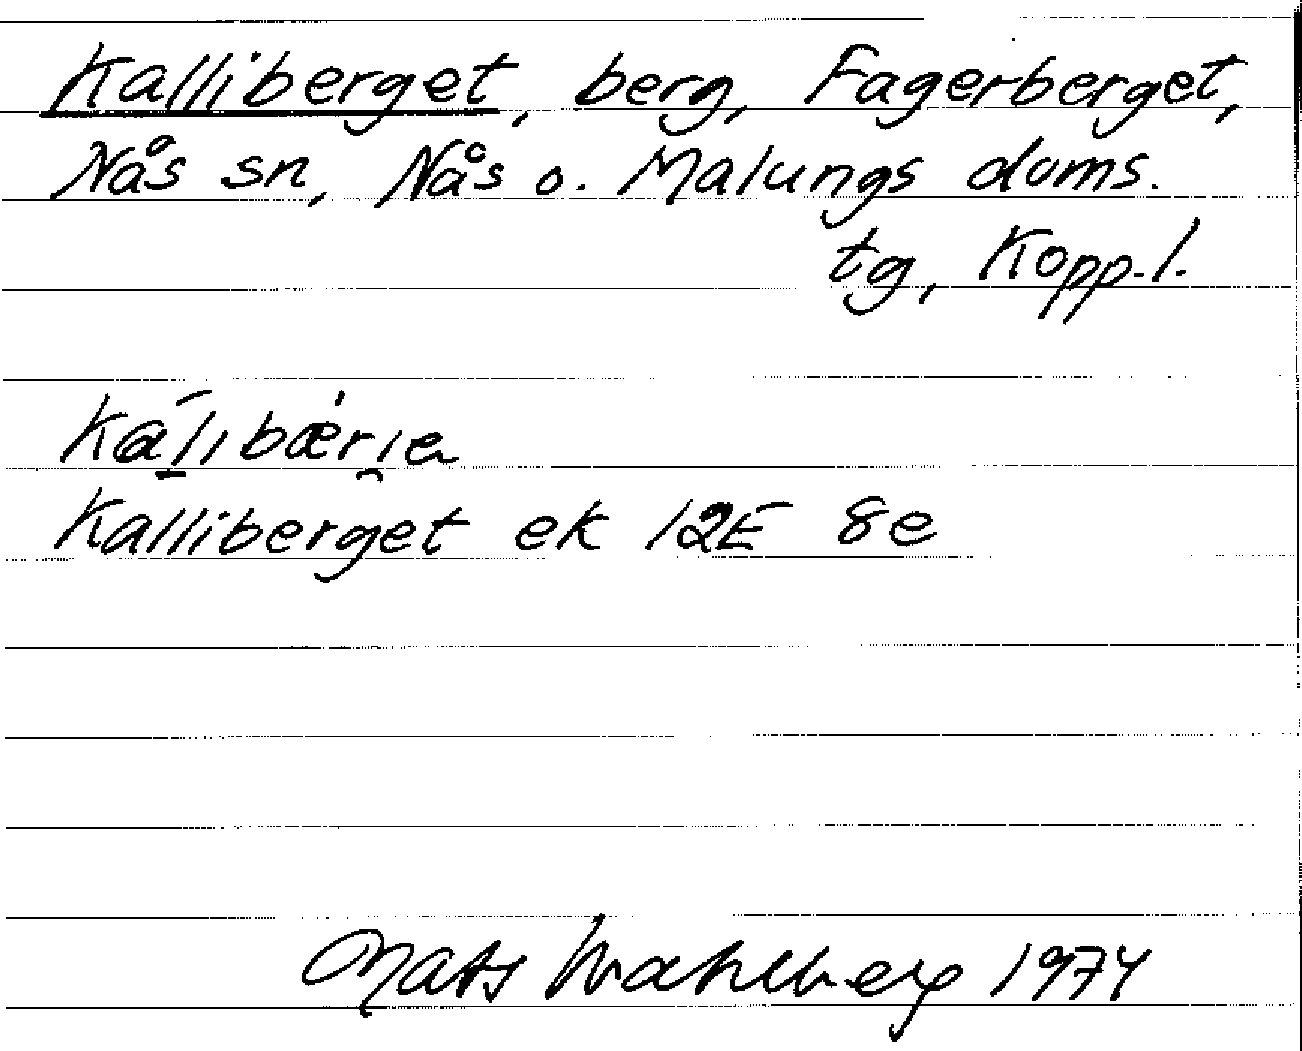 Kalliberget, berg, Fagerberget,
Nås sn, Nås o. Malungs doms.
tg, Kopp.l.
Kalliberget ek 12E 8e
Mats Wahlberg 1974